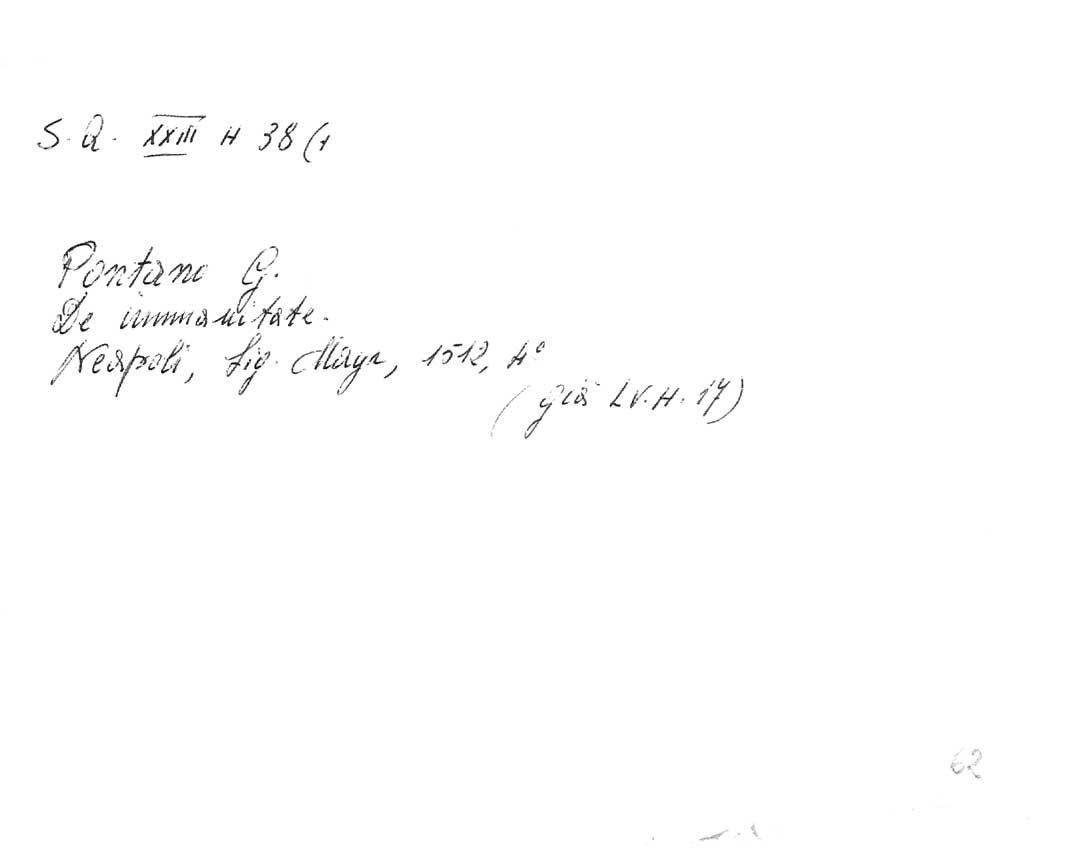 S. Q. XXIII H 38 (1
Pontano G.
De immanitate.
Neapoli, Sig. Mayr, 1512, 4°
(già LV. H. 17)
62